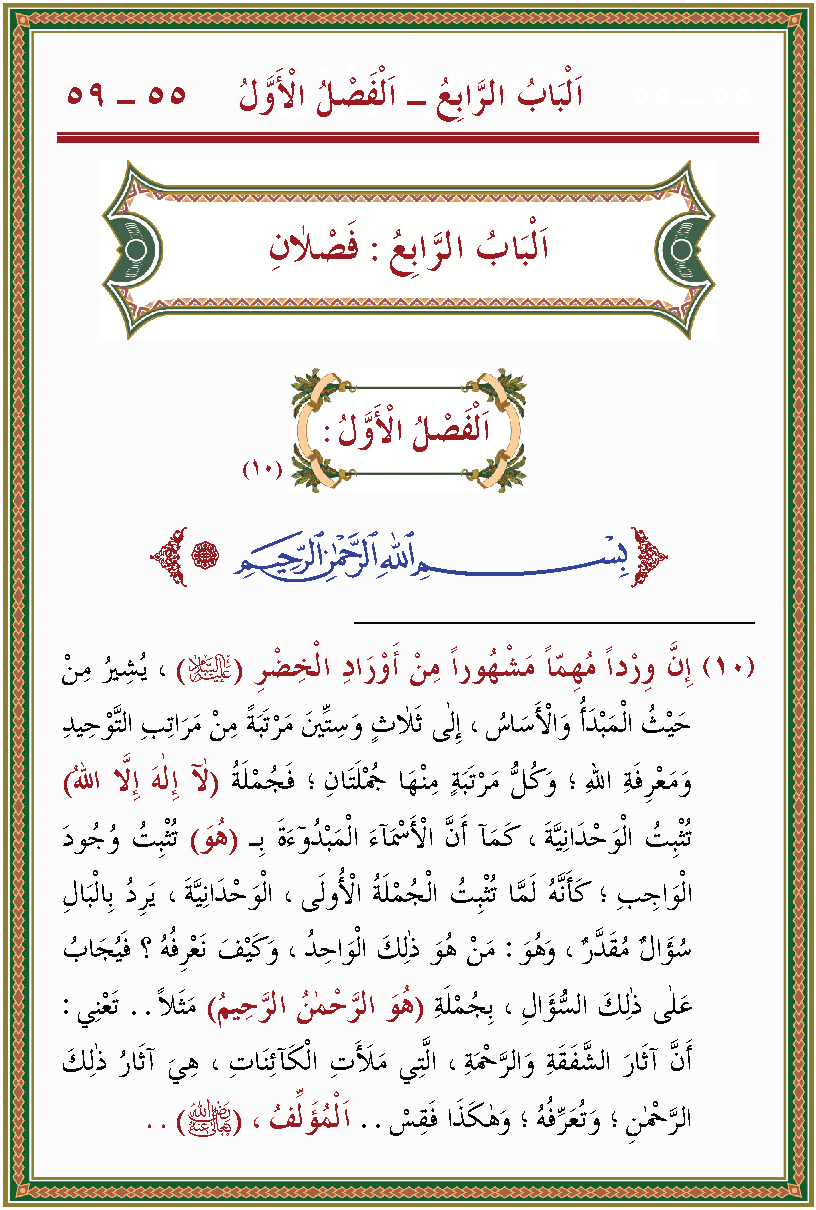 اَلْبَابُ الرَّابِعُ – اَلْفَصْلُ الْأَوَّلُ ٥٥ – ٥٩
اَلْبَابُ الرَّابِعُ : فَصْلَانِ
اَلْفَصْلُ الْأَوَّلُ :
(١٠)
بِسْمِ اللّٰهِ الرَّحْمٰنِ الرَّحِيمِ
(١٠) إِنَّ وِرْداً مُهِمّاً مَشْهُوراً مِنْ أَوْرَادِ الْخِضْرِ (عَلَيْهِ السَّلَام) ، يُشِيرُ مِنْ
حَيْثُ الْمَبْدَأُ وَالْأَسَاسُ ، إِلٰى ثَلٰاثٍ وَسِتِّينَ مَرْتَبَةً مِنْ مَرَاتِبِ التَّوْحِيدِ
وَمَعْرِفَةِ اللهِ ؛ وَكُلُّ مَرْتَبَةٍ مِنْهَا جُمْلَتَانِ ؛ فَجُمْلَةُ (لَآ إِلٰهَ إِلَّا اللهُ)
تُثْبِتُ الْوَحْدَانِيَّةَ ، كَمَآ أَنَّ الْأَسْمَآءَ الْمَبْدُوٓءَةَ بِـ (هُوَ) تُثْبِتُ وُجُودَ
الْوَاجِبِ ؛ كَأَنَّهُ لَمَّا تُثْبِتُ الْجُمْلَةُ الْأُولَى ، الْوَحْدَانِيَّةَ ، يَرِدُ بِالْبَالِ
سُؤَالٌ مُقَدَّرٌ ، وَهُوَ : مَنْ هُوَ ذٰلِكَ الْوَاحِدُ ، وَكَيْفَ نَعْرِفُهُ ؟ فَيُجَابُ
عَلٰى ذٰلِكَ السُّؤَالِ ، بِجُمْلَةِ (هُوَ الرَّحْمٰنُ الرَّحِيمُ) مَثَلاً .. تَعْنِي :
أَنَّ آثَارَ الشَّفَقَةِ وَالرَّحْمَةِ ، الَّتِي مَلَأَتِ الْكَآئِنَاتِ ، هِيَ آثَارُ ذٰلِكَ
الرَّحْمٰنِ ؛ وَتُعَرِّفُهُ ؛ وَهٰكَذَا فَقِسْ .. اَلْمُؤَلِّفُ ، (رَضِيَ اللهُ تَعَالَى عَنْهُ) ..